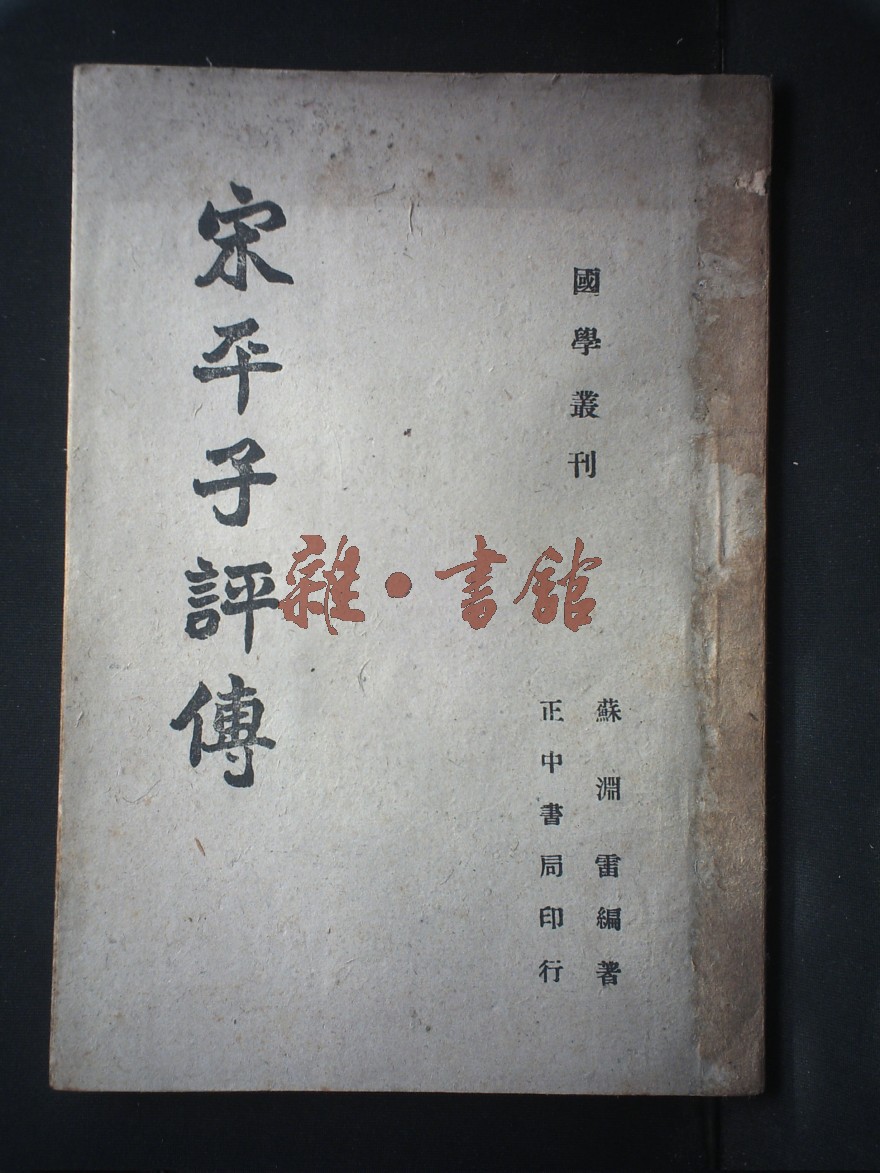 國學叢刊
蘇淵雷編著
正中書局印行
宋平子評傳
雜·書館